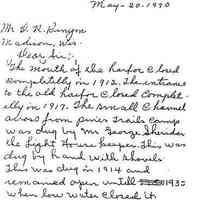 May-20-1970
Mr D. R. Runyon
Madison, Wis.
Dear Sir;
The mouth of the harbor closed
completilly in 1912. The entrance
to the old harbor closed complet-
elly in 1917. The small channel
across from pines Trails camps
was dug by Mr George Sheridan
the Light House keeper. This was
dug by hand with shovels.
This was dug in 1914 and
remained open untill 1935
when low water closed it.